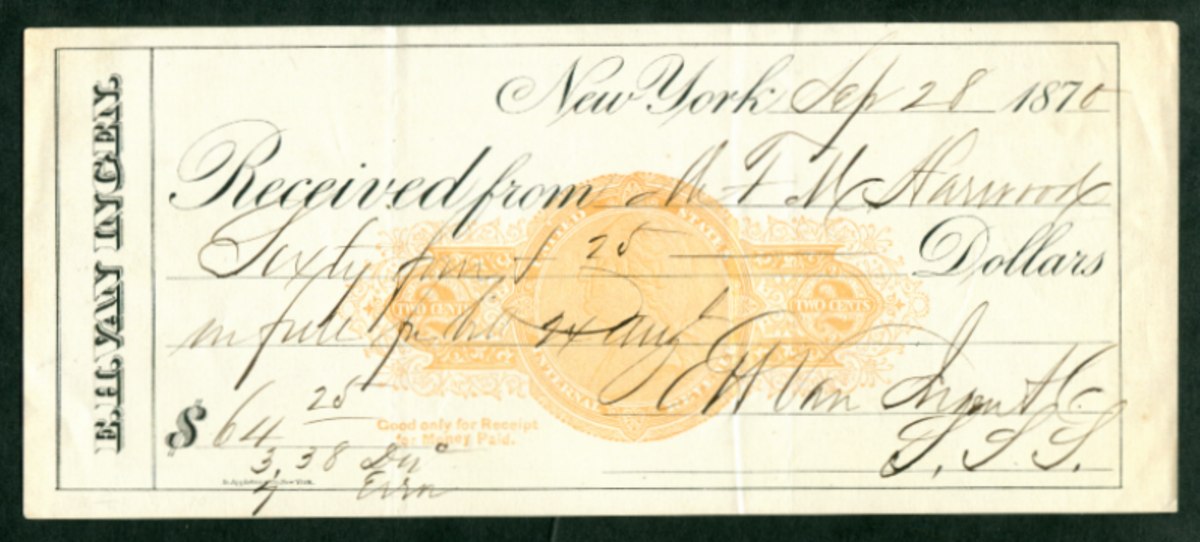 E. H. VAN INGEN.
New York Sep 28 1870
Received from M F M Harwood
Sixty four & 25 Dollars
in full for bill 24 Aug
E H Van Ingen & Co
$ 64 25
S. S. S.
UNITED STATES
TWO CENTS
2
TWO CENTS
2
INTERNAL REVENUE
Good only for Receipt
for Money Paid.
3.38
D. Appleton & Co. New York.